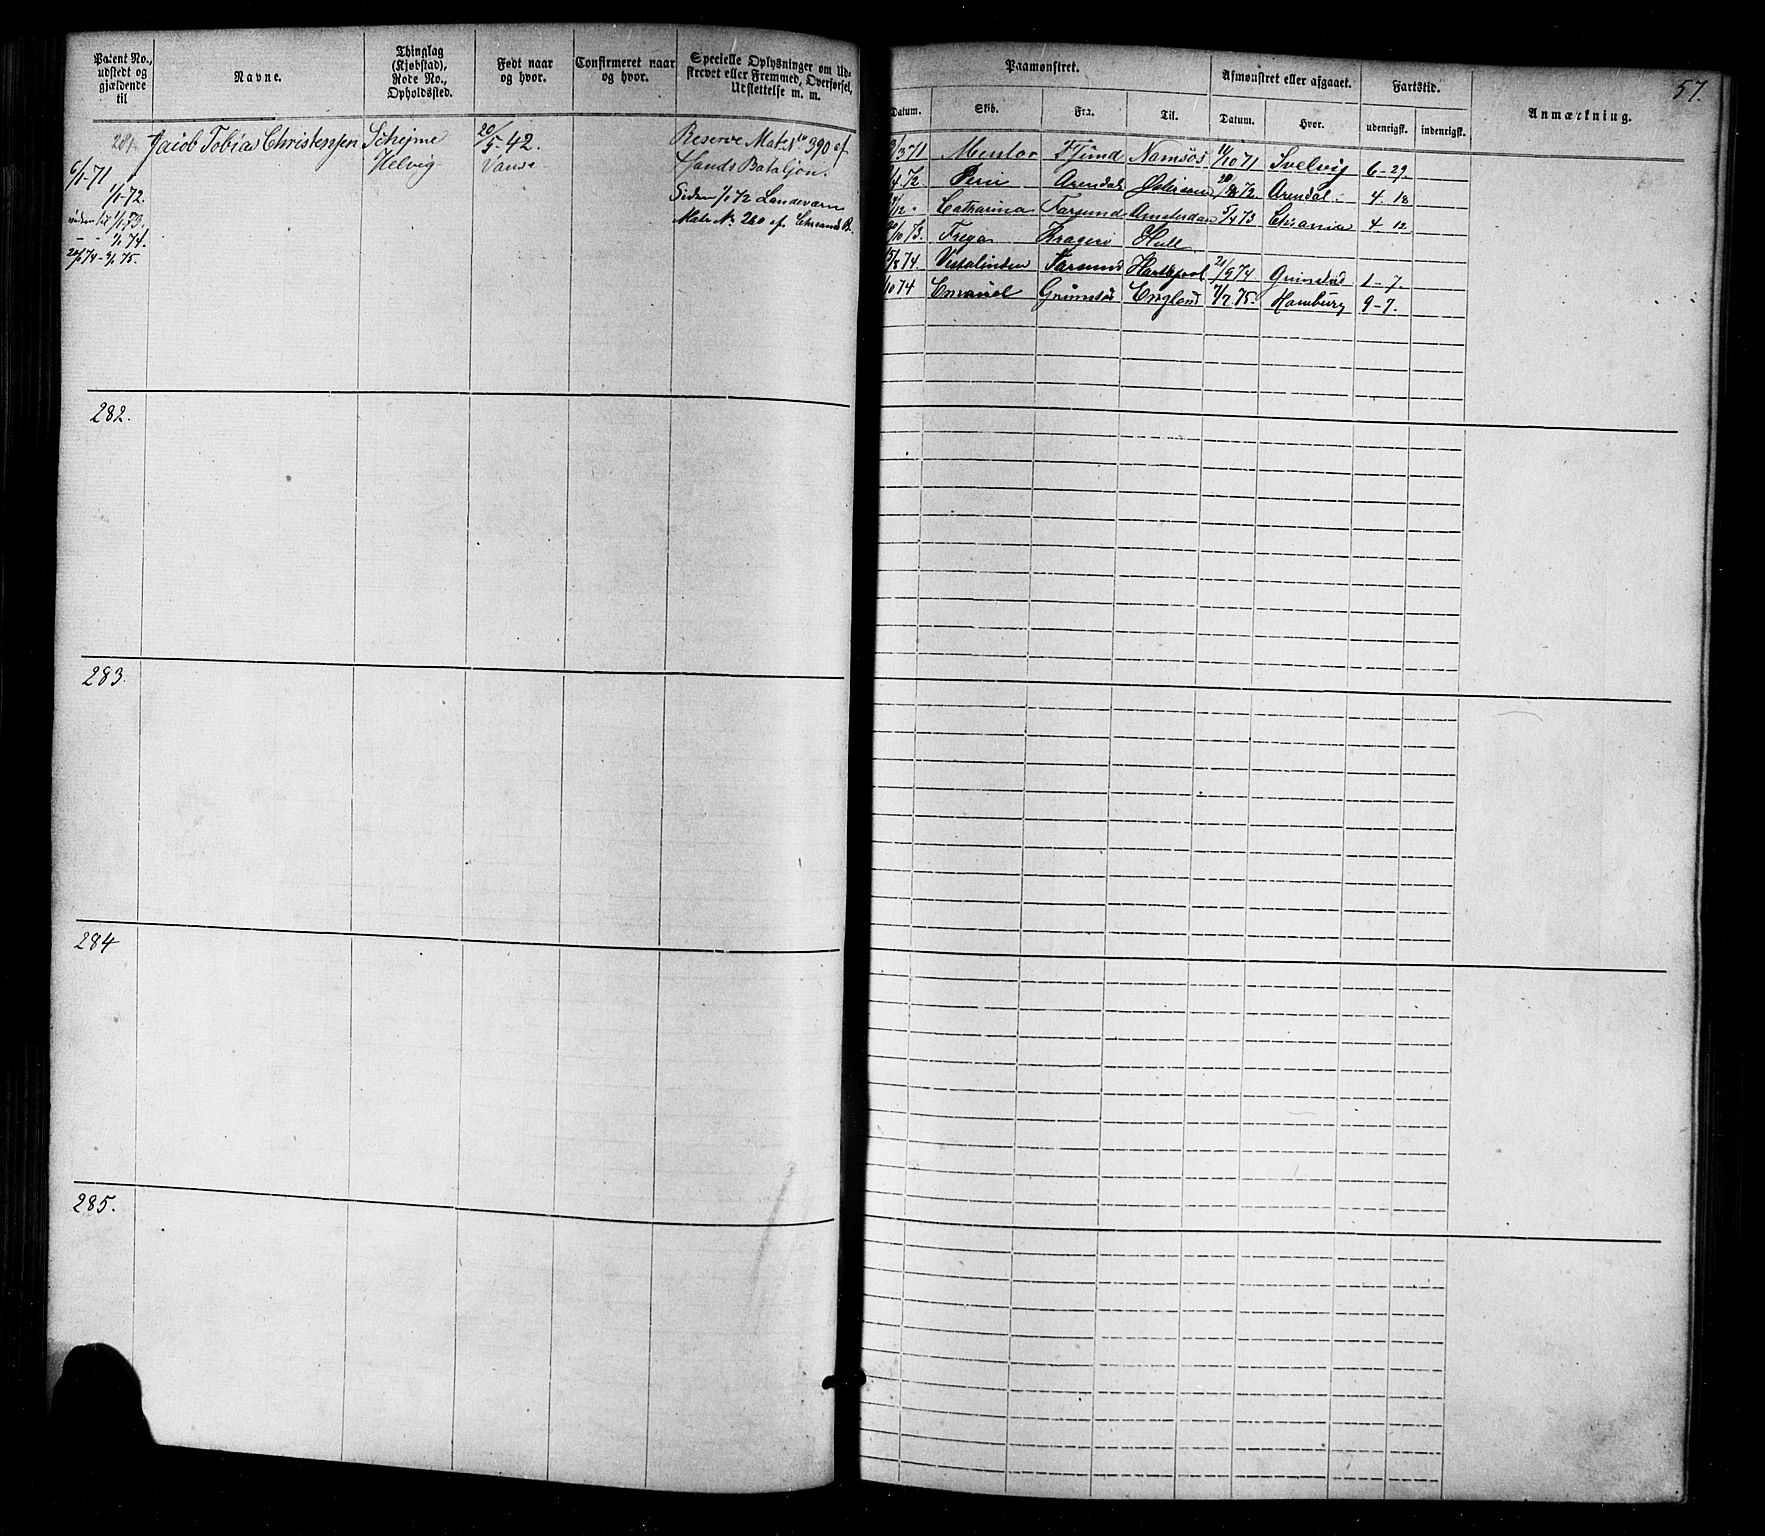 Patent No., udstedt og gjældende til
Navne.
Thinglag (Kjøbstad), Rode No., Opholdssted.
Født naar og hvor.
Confirmeret naar og hvor.
Specielle Oplysninger om Udskrevet eller Fremmed, Overførsel, Udslettelse m. m.
Paamønstret.
Afmønstret eller afgaaet.
Fartstid.
Anmærkning.
57.
Datum.
Skib.
Fra.
Til.
Datum.
Hvor.
udenrigsk.
indenrigsk.
281
Jacob Tobias Christensen
Skeime
Helvig
20/5-42.
Vanse
Reserve Mats No 390 af
Sands Bataljon.
Siden 1/1 72 Landeværn
Mats No 260 af Chrsands B.
6/1-71
1/1-72.
1/1 73.
- - 1/1 74.
/3 71 Mentor Fjund Namsos 11/10 71 Svelvig 6-29
/4 72 Arendal 20/8 72 Arendal 4-18
/12 " Catharina Farsund Amsterdam 5/4 73 4-12
/10 73. Freya Kragerø Hull
/8 74. Farsund Hartlepool 21/9 74 Grimstad 1-7.
/10 74 Emanuel Grimstad England 7/7 75. Hamburg 9-7.
282.
283.
284
285.